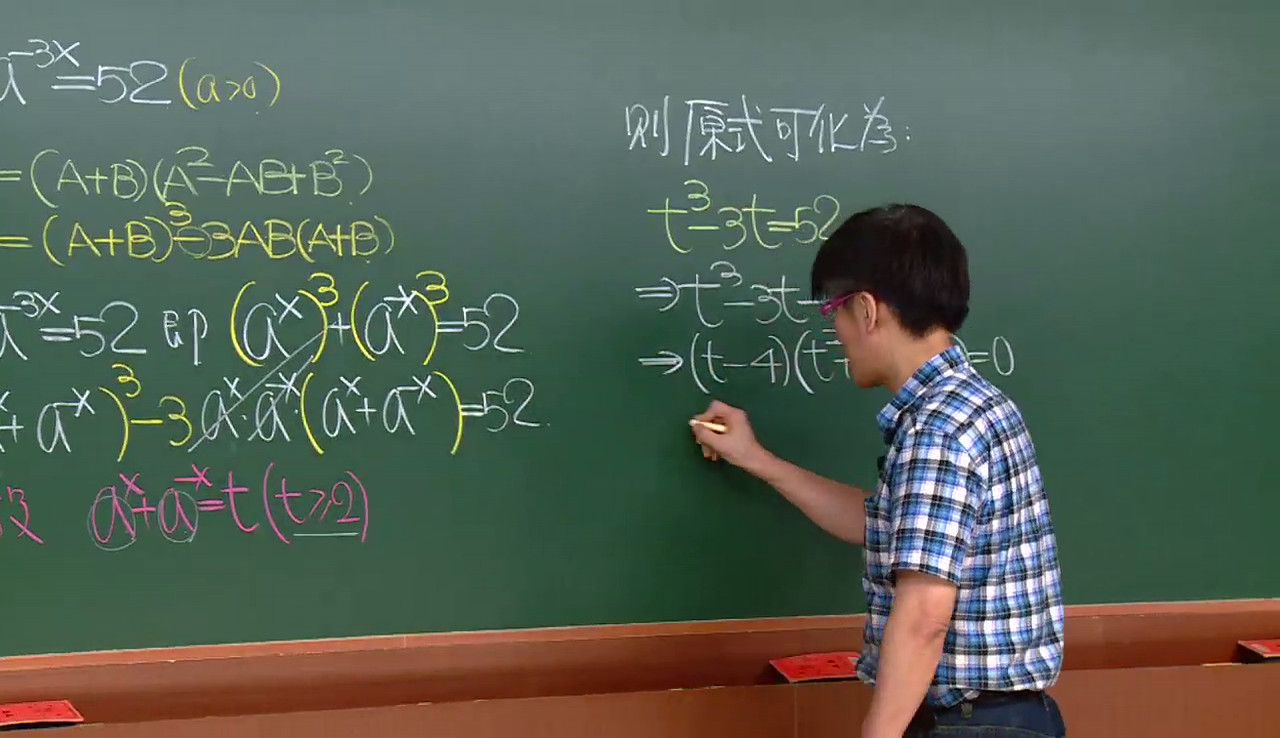 a^{-3x}=52(a>0)
=(A+B)(A²-AB+B²)
=(A+B)³-3AB(A+B)
a^{-3x}=52 即 (a^x)³+(a^{-x})³=52
+a^{-x})³-3a^x·a^{-x}·(a^x+a^{-x})=52.
设 a^x+a^{-x}=t(t≥2)
则原式可化为:
t³-3t=52
⇒t³-3t-
⇒(t-4)(t²+ )=0